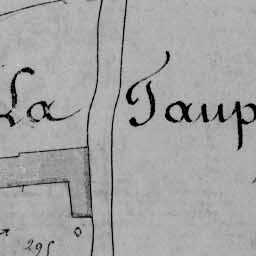 La Taup
295